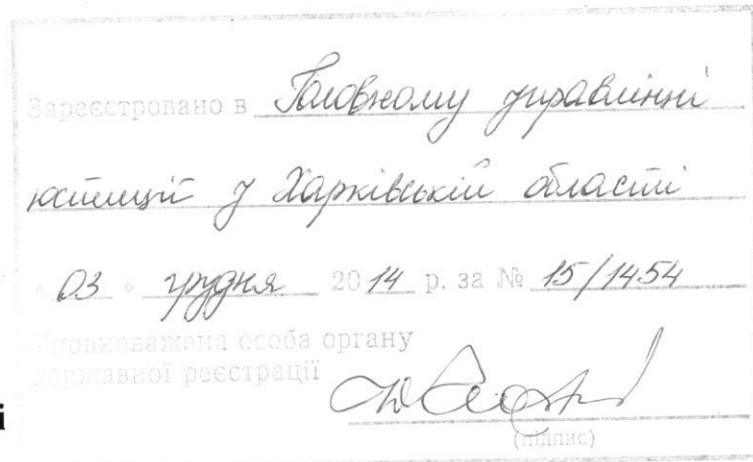 Зареєстровано в Головному управлінні
юстиції у Харківській області
« 03 » грудня 2014 р. за № 15/1454
Уповноважена особа органу
державної реєстрації
(підпис)
і